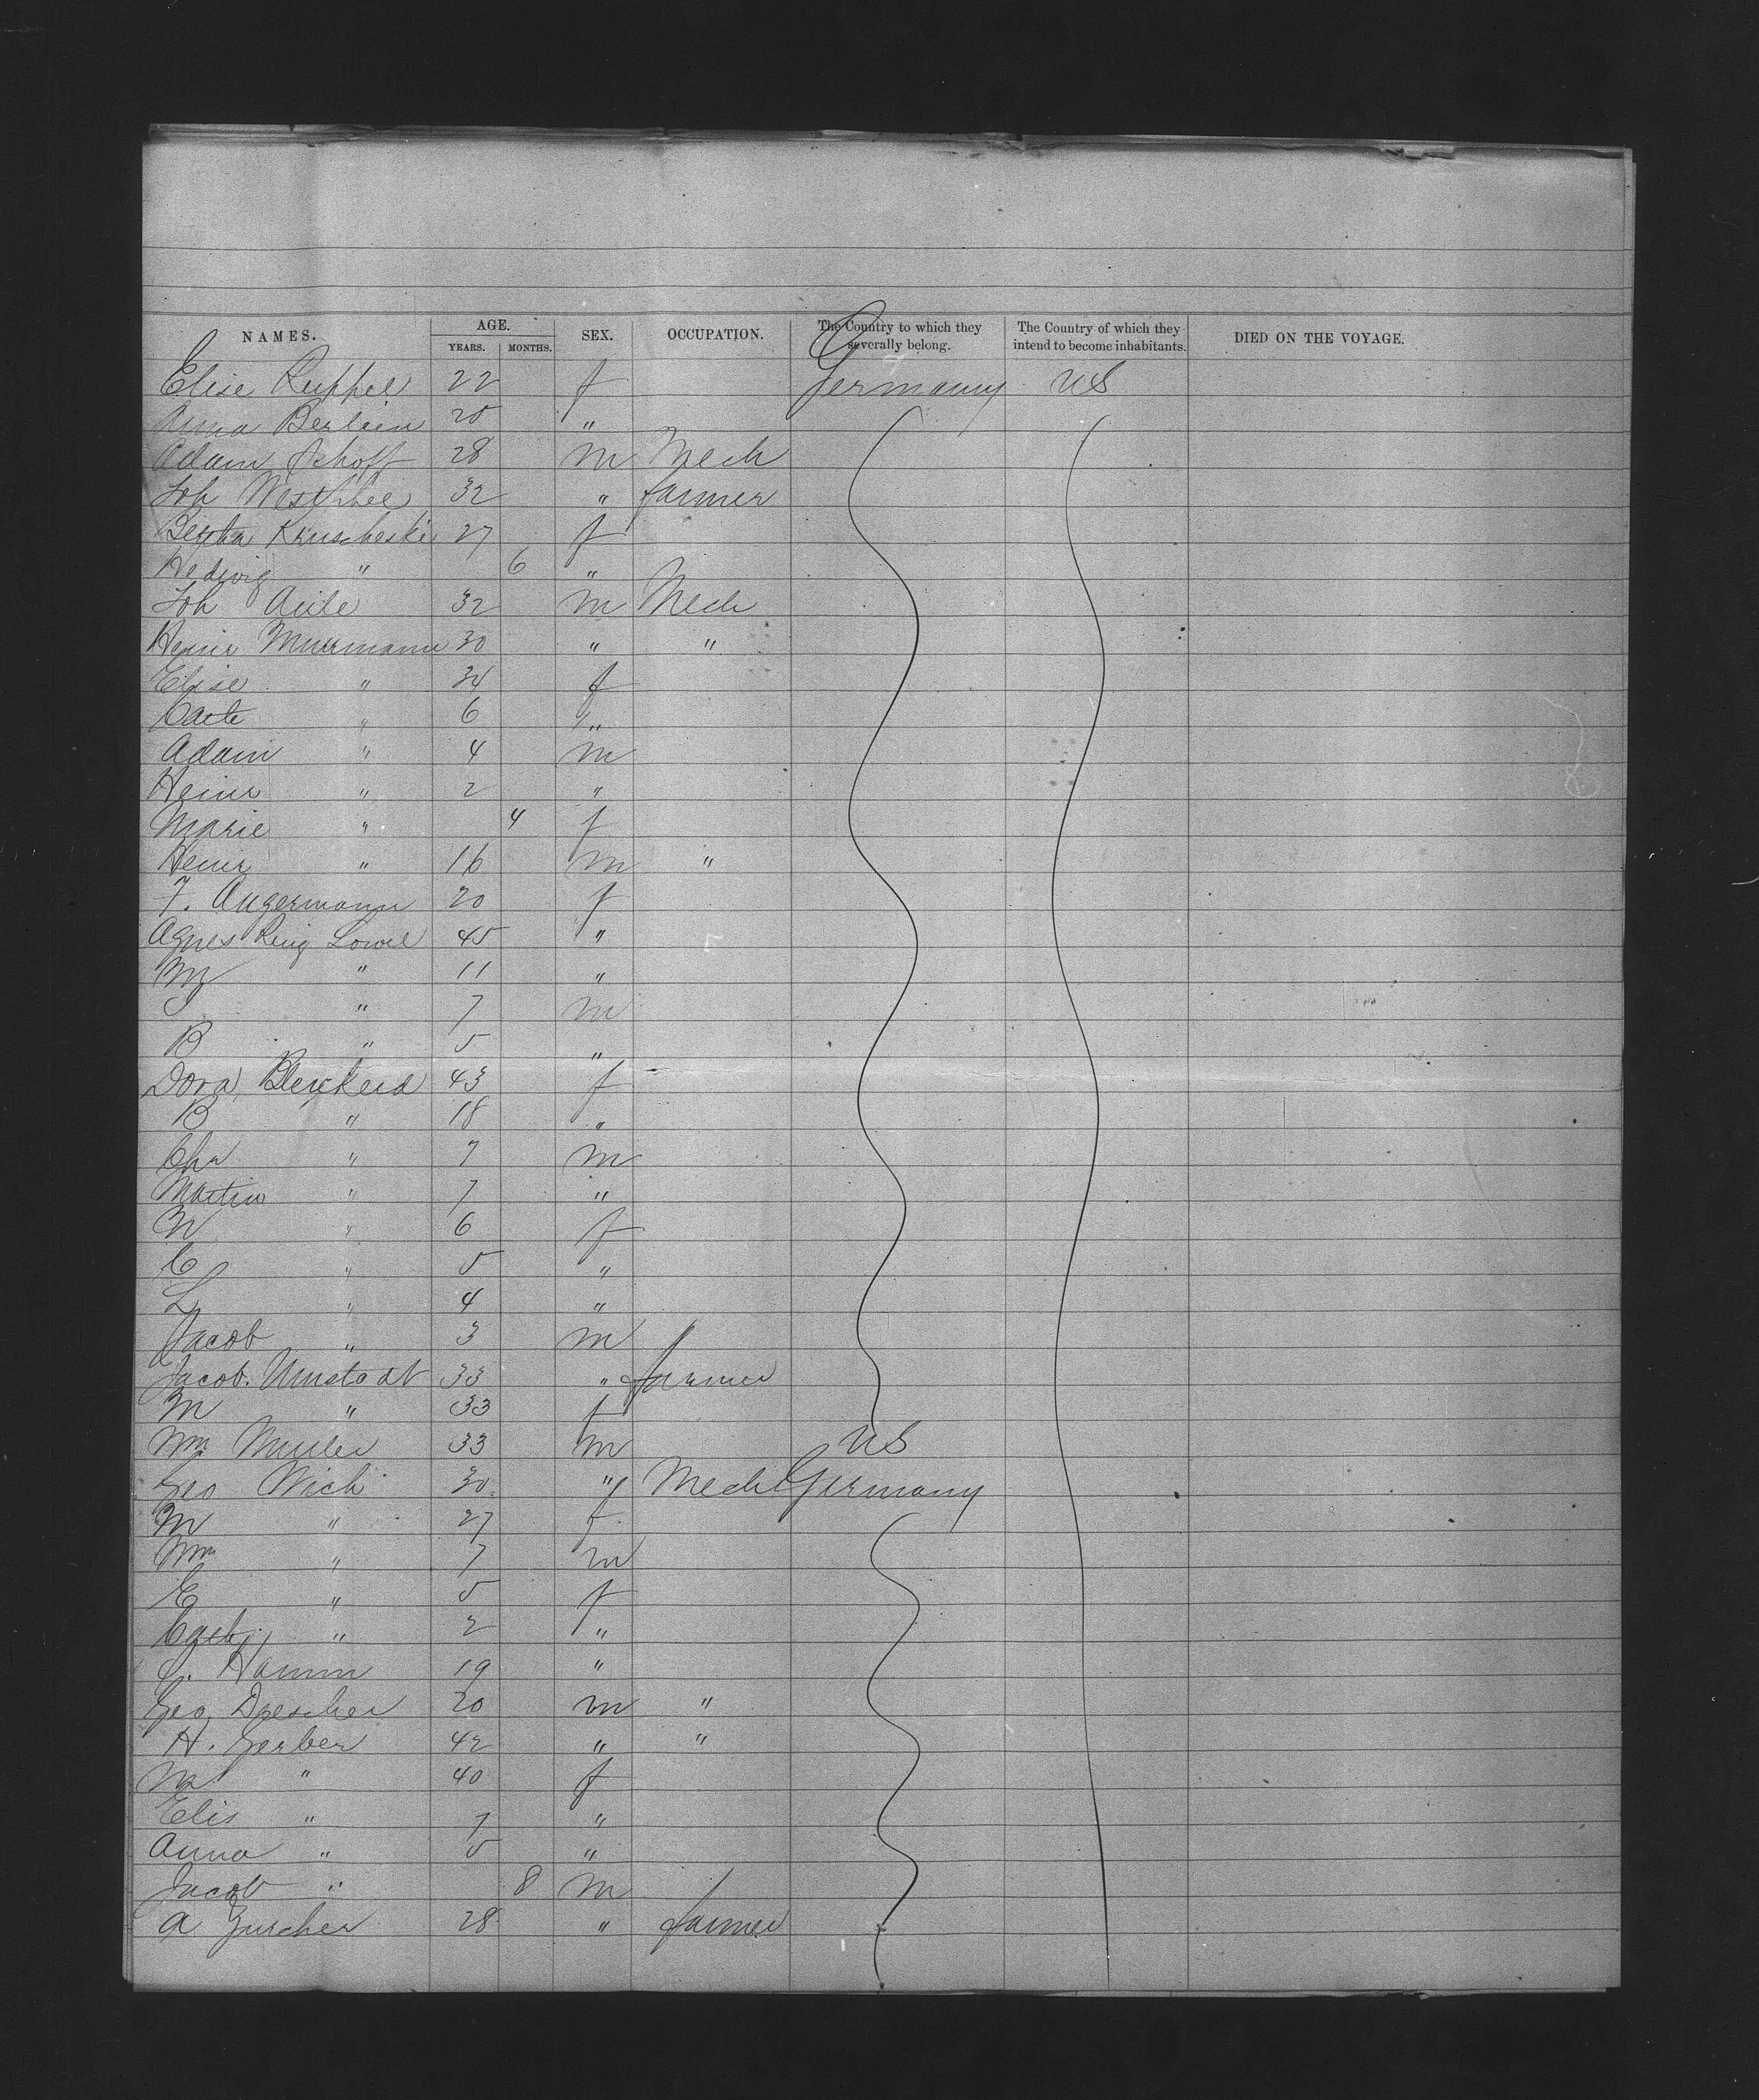 NAMES. AGE. SEX. OCCUPATION. The Country to which they severally belong. The Country of which they intend to become inhabitants. DIED ON THE VOYAGE.
YEARS. MONTHS.
Elise Ruppel 22 f Germany US
Anna Berlein 20 "
Adam Schoff 28 m Mech
Joh 32 " farmer
Bertha Kruscheski 27 f
Hedwig " 6 "
Joh Aule 32 m Mech
Heinr Murrmann 30 " "
Elise " 34 f
" 6 "
Adam " 4 m
Heinr " 2 "
Marie " 4 f
Heinr " 16 m "
F. Angermann 20 f
Agnes Lowel 45 "
M " 11 "
J " 7 m
B " 5 "
Dora 43 f
B " 18 "
Chr " 7 m
Martin " 7 "
W " 6 f
C " 5 "
L " 4 "
Jacob " 3 m
Jacob. Umstadt 33 " farmer
M " 33 f
Wm Muller 33 m US
Geo Wich 30 " Mech Germany
M " 27 f
Wm " 7 m
E " 5 f
" 2 "
C. Hamm 19 "
Geo Drescher 20 m "
H. Gerber 42 " "
M " 40 f
Elis " 7 "
Anna " 5 "
Jacob " 8 m
A Zurcher 28 " farmer